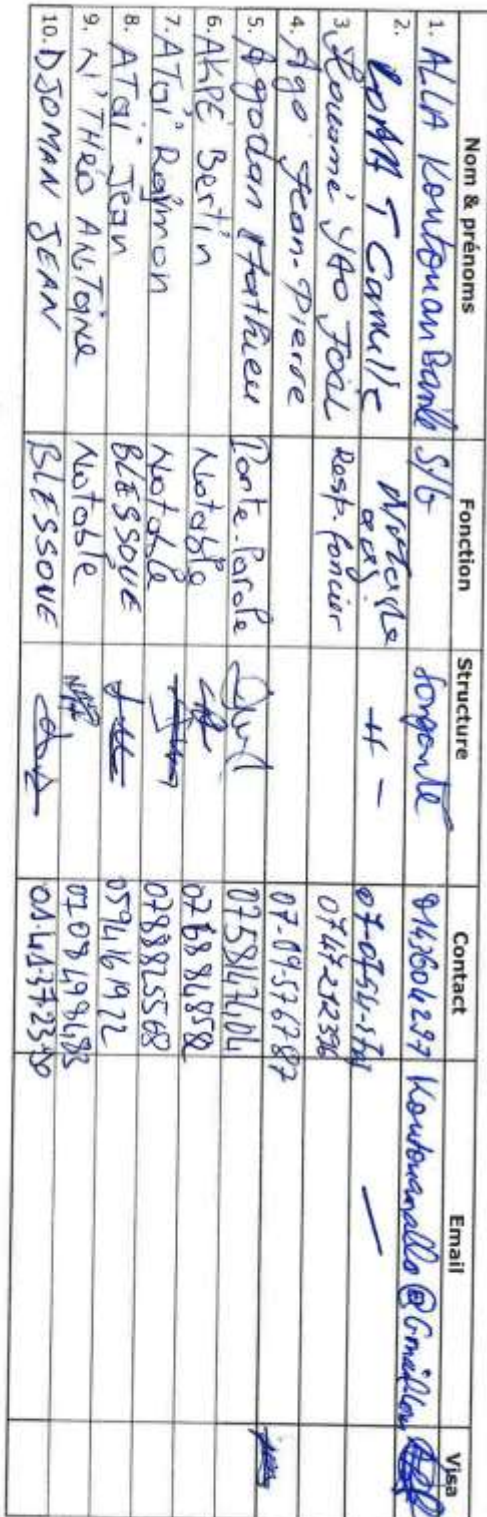 Nom & prénoms Fonction Structure Contact Email Visa
1. ALLA Kontouan Banlé S/G 0143604297 Kontouanalla@Gmail.com
2. T Camille Notable - H -
3. Kouamé YAO Joël Resp. foncier 0747212396
4. Ago Jean-Pierre 07-09-576787
5. Agodan Mathieu Porte-Parole 075847404
6. AKPE Bertin Notable 076884858
7. ATai Raymon Notable 0788825568
8. ATai Jean BLESSOUE 0594161922
9. N'THéo ANTOine Notable 0708498483
10. DJOMAN JEAN BLESSONE 01.41.37.23.90